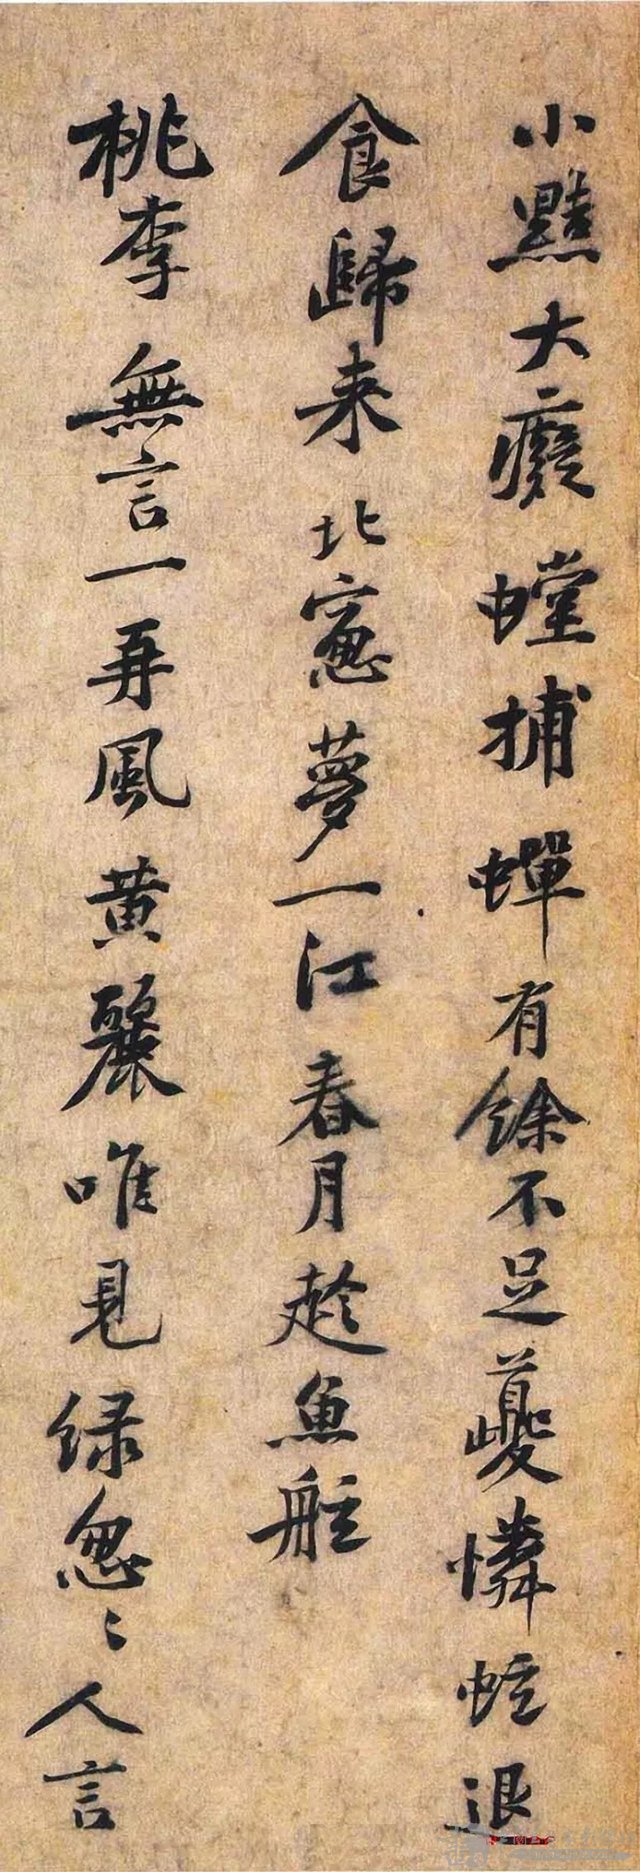 小黠大癡螳捕蟬有餘不足夔憐蚿退
食歸来北窻夢一江春月趂魚舩
桃李無言一再風黄麗唯見緑怱〻人言